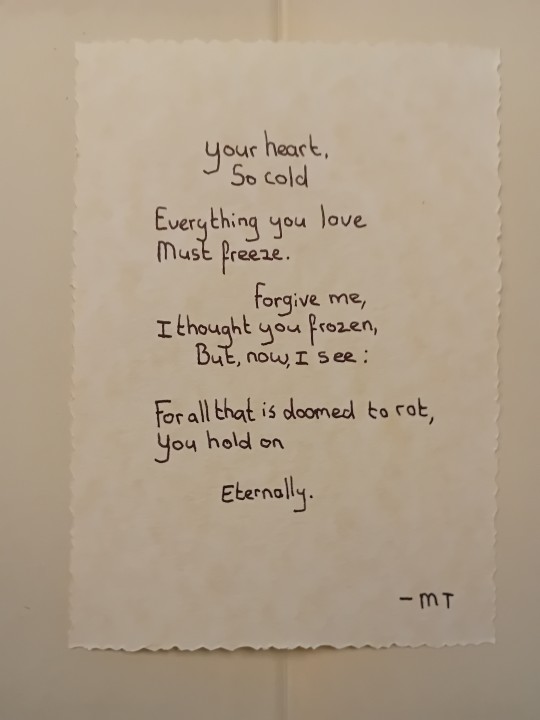 your heart,
So cold
Everything you love
Must freeze.
Forgive me,
I thought you frozen,
But, now, I see:
For all that is doomed to rot,
You hold on
Eternally.
- MT